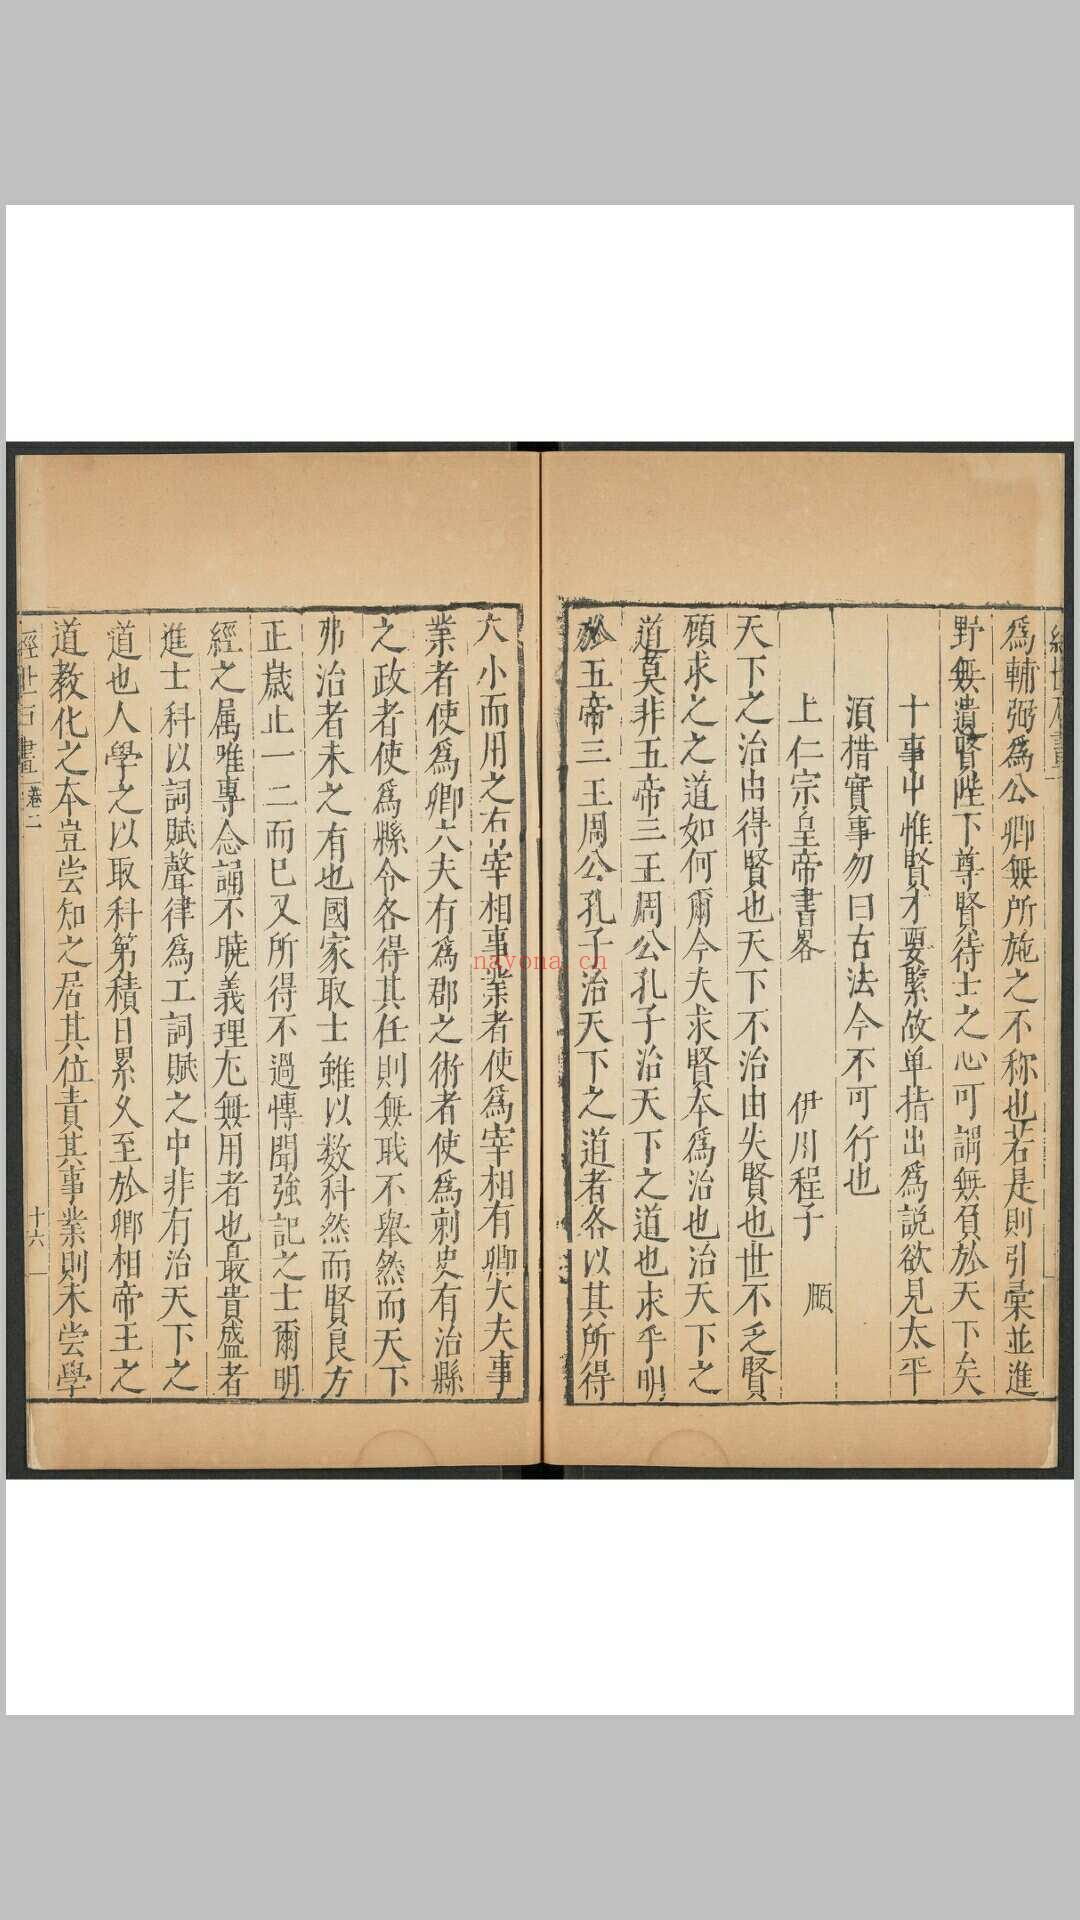 爲輔弼爲公卿無所施之不称也若是則引彙並進
野無遺賢陛下尊賢待士之心可謂無負於天下矣
十事中惟賢才要緊故单指出爲説欲見太平
湏措實事勿曰古法今不可行也
上仁宗皇帝書畧 伊川程子 頤
天下之治由得賢也天下不治由失賢也世不乏賢
頋求之之道如何爾今夫求賢本爲治也治天下之
道莫非五帝三王周公孔子治天下之道也求乎明
於五帝三王周公孔子治天下之道者各以其所得
大小而用之有宰相事業者使爲宰相有卿大夫事
業者使爲卿大夫有爲郡之術者使爲刺史有治縣
之政者使爲縣令各得其任則無職不舉然而天下
弗治者未之有也國家取士雖以数科然而賢良方
正歳止一二而已又所得不過愽聞強記之士爾明
經之属唯專念誦不曉義理尤無用者也最貴盛者
進士科以詞賦聲律爲工詞賦之中非有治天下之
道也人學之以取科第積日累久至於卿相帝王之
道教化之本豈嘗知之居其位責其事業則未嘗學
經世石畫 卷二 十六
nayona.cn